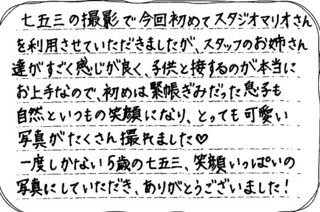 七五三の撮影で今回初めてスタジオマリオさん
を利用させていただきましたが、スタッフのお姉さん
達がすごく感じが良く、子供と接するのが本当に
お上手なので、初めは緊張ぎみだった息子も
自然といつもの笑顔になり、とっても可愛い
写真がたくさん撮れました♡
一度しかない5歳の七五三、笑顔いっぱいの
写真にしていただき、ありがとうございました!